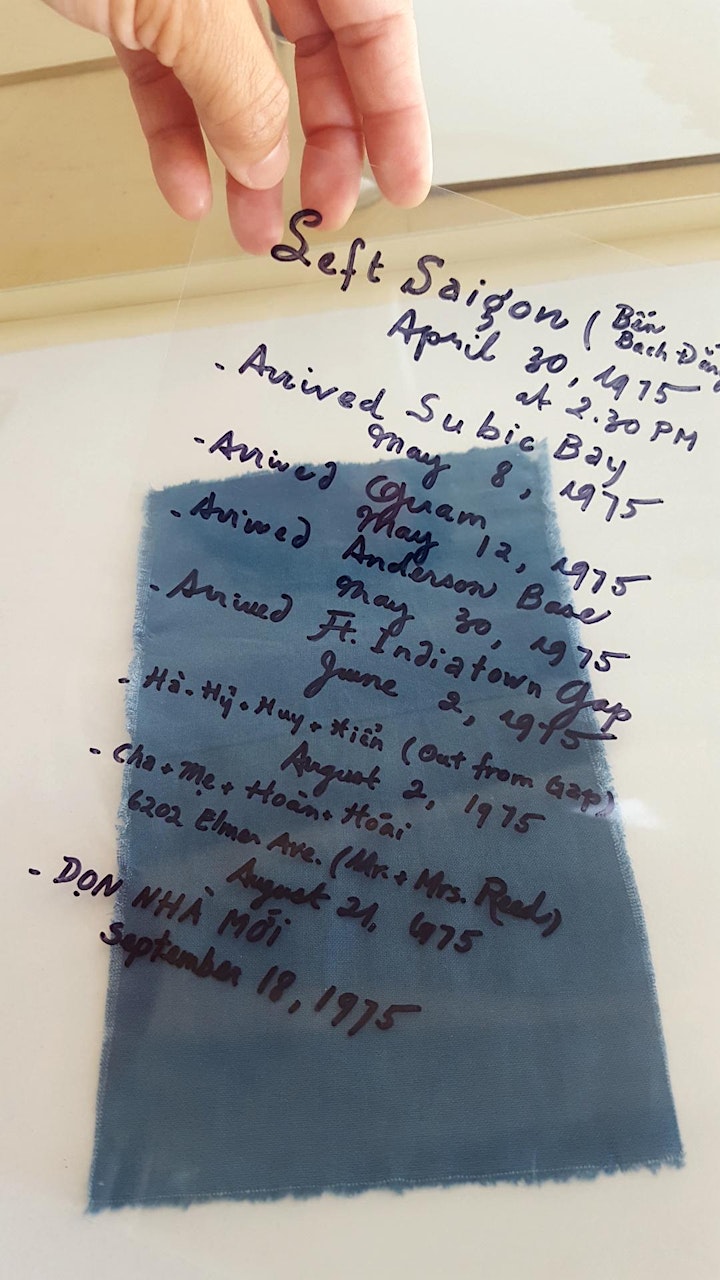 Left Saigon (Bến
Bach Đằng
April 30, 1975
at 2.30 PM
- Arrived Subic Bay
May 8, 1975
- Arrived Guam
May 12, 1975
- Arrived Anderson Base
May 30, 1975
- Arrived Ft. Indiatown Gap
June 2, 1975
- Hà + Hỷ + Huy + Hiển (Out from Gap)
August 2, 1975
- Cha + Me + Hoàn + Hoài
6202 Elmer Ave. (Mr. + Mrs. Reeds)
August 21, 1975
- DỌN NHÀ MỚI
September 18, 1975